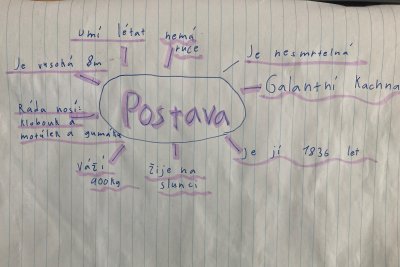 umí létat
nemá
ruce
Je nesmrtelná
Je vysoká 8m
Galantní Kachna
Postava
Ráda nosí:
klobouk a
motúlek a gumáky
je jí 1836 let
váží
900kg
žije na
slunci